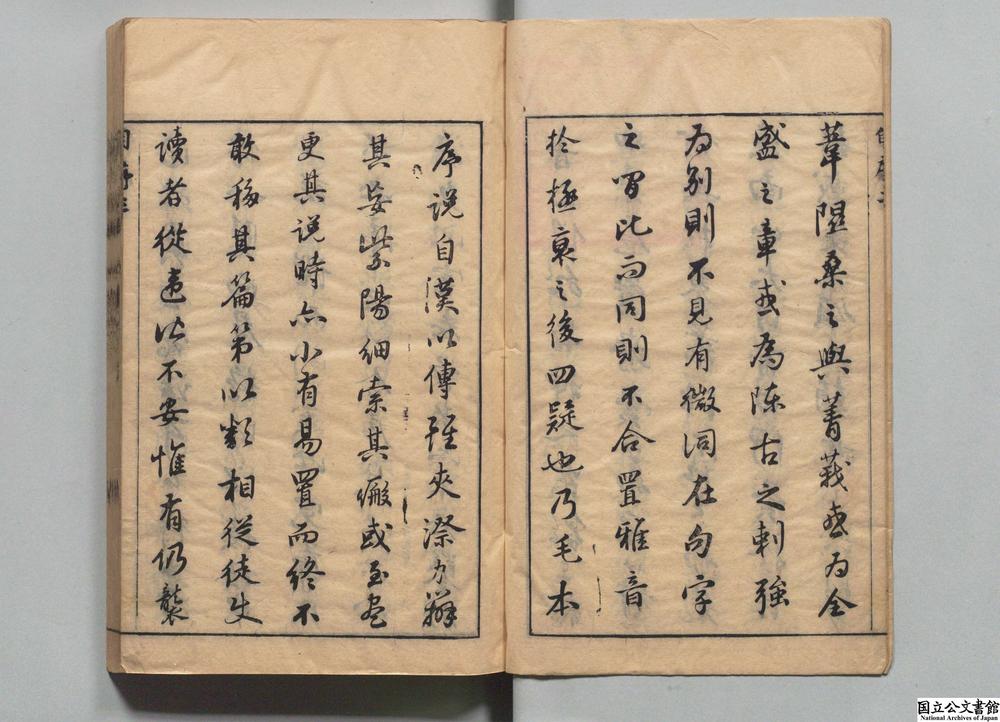 葦隰桑之與菁莪或为全
盛之章或為陳古之刺強
为别則不見有微詞在句字
之間比而同則不合置雅音
於極衰之後四疑也乃毛本
序说自漢以傳雖夾漈力辨
其妄紫陽細索其癥或至盡
更其说時亦小有易置而終不
敢移其篇第以類相從徒使
讀者從違皆不安惟有仍襲
自序三
国立公文書館
National Archives of Japan